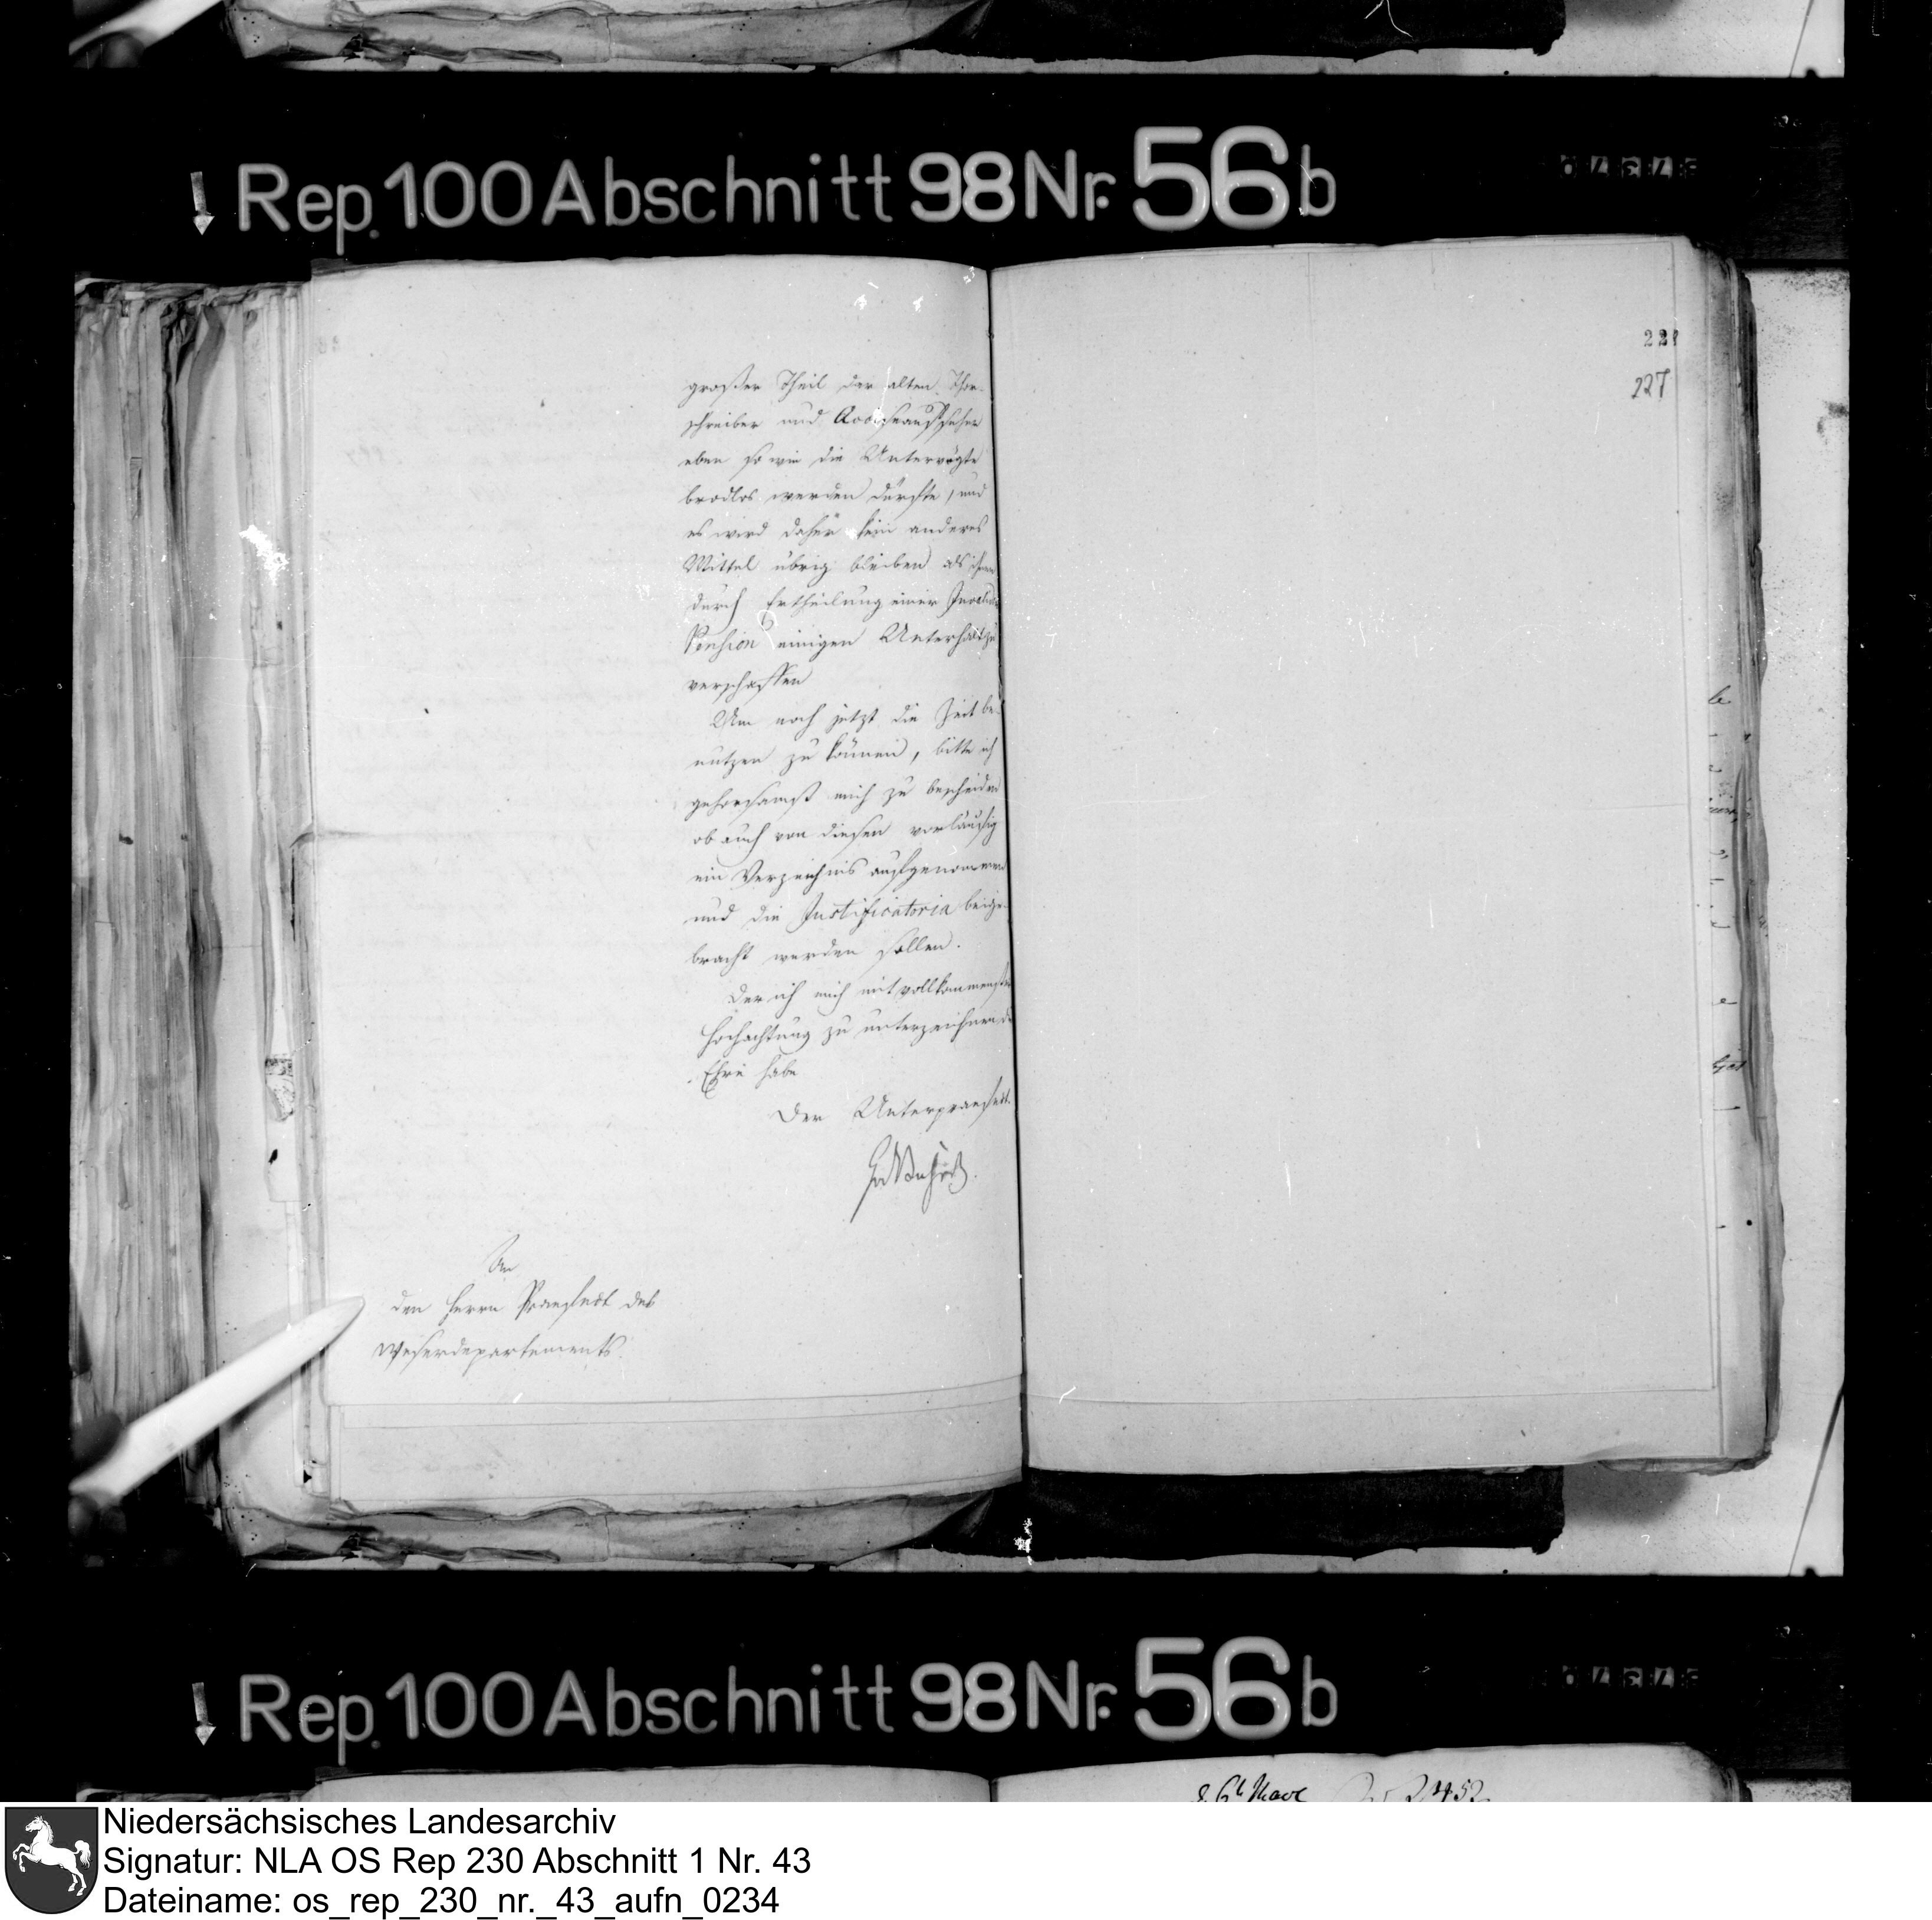 Rep. 100 Abschnitt 98 Nr. 56 b
228
227
großer Theil der alten Thor-
schreiber und Acciseaufseher
eben so wie die Untervögte
brodlos werden dürfte, und
es wird daher kein anderes
Mittel übrig bleiben als ihnen
durch Ertheilung einer
Pension einigen Unterhalt zu
verschaffen
Um noch jetzt die Zeit be-
nutzen zu können, bitte ich
gehorsamst mich zu bescheiden
ob auch von diesen vorläufig
ein Verzeichnis aufgenommen
und die Justificatoria beige-
bracht werden sollen.
Der ich mich mit vollkommenster
Hochachtung zu unterzeichnen die
Ehre habe
Der Unterpraefect.
An
den Herrn Praefect des
Weserdepartements.
Rep. 100 Abschnitt 98 Nr. 56 b
Niedersächsisches Landesarchiv
Signatur: NLA OS Rep 230 Abschnitt 1 Nr. 43
Dateiname: os_rep_230_nr._43_aufn_0234